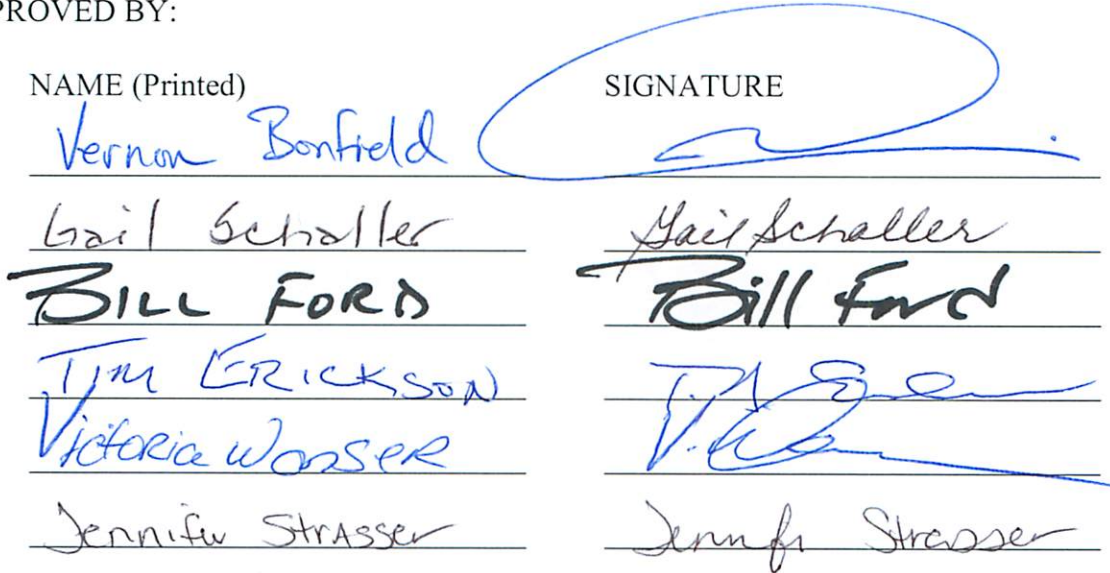 PROVED BY:
NAME (Printed) SIGNATURE
Vernon Bonfield
Gail Schaller Gail Schaller
BILL FORD Bill Ford
TIM ERICKSON
Victoria Wonser
Jennifer Strasser Jennifer Strasser